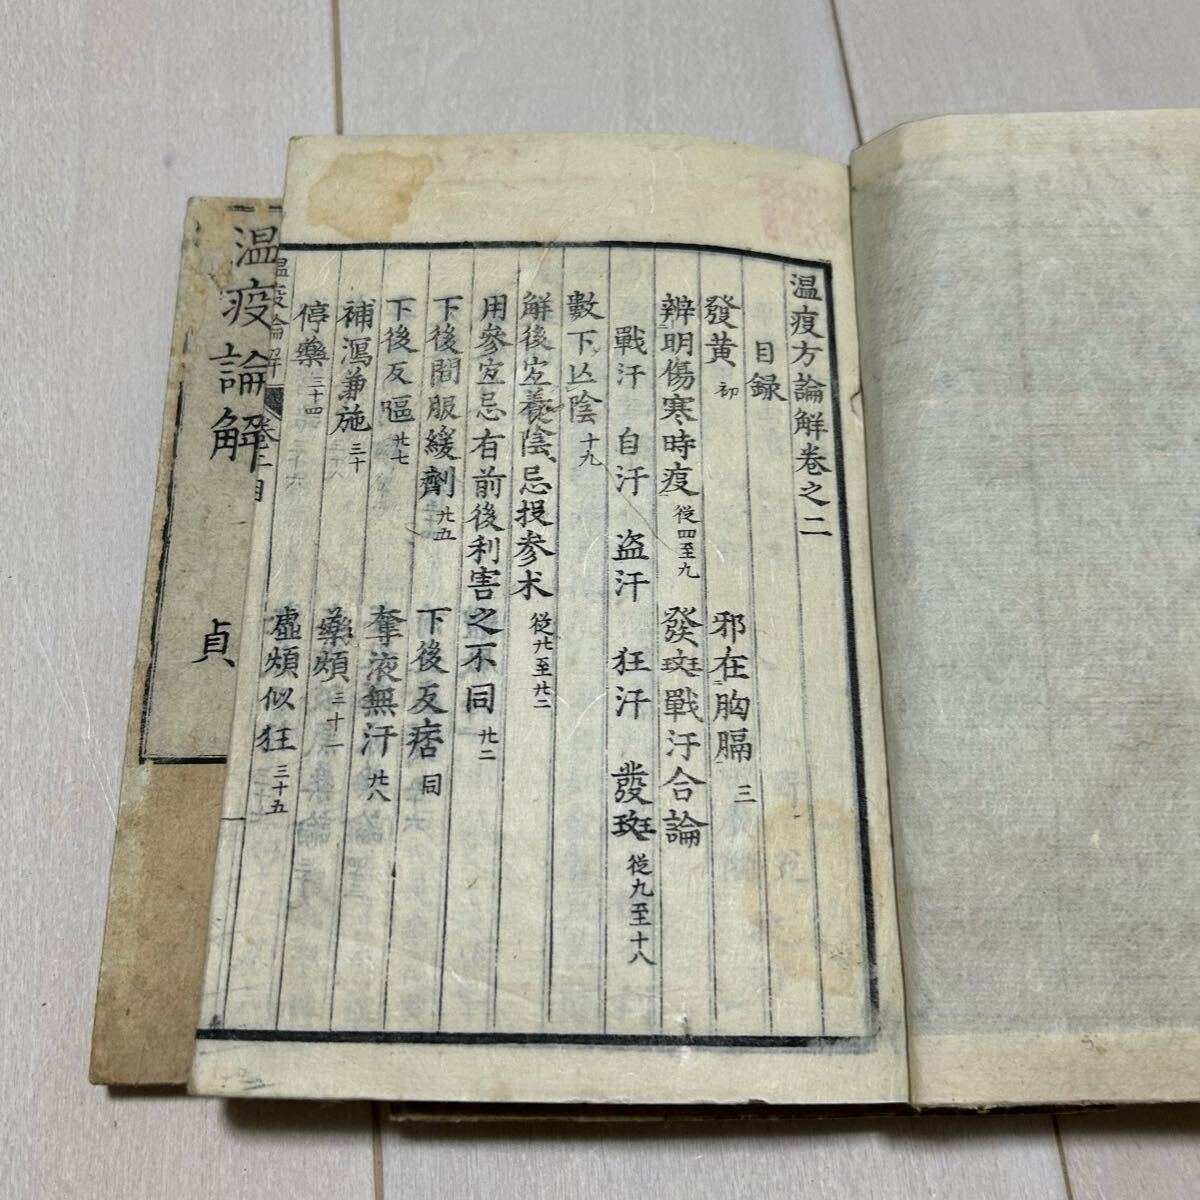 温疫方論解卷之二
目録
發黃 初 邪在胸膈 三
辨明傷寒時疫 從四至九 發斑戰汗合論
戰汗 自汗 盗汗 狂汗 發斑 從九至十八
數下亡陰 十九
解後宜養陰忌投参术 從廿至廿二
用參宜忌有前後利害之不同 廿二
下後間服緩劑 廿五 下後反痞 同
下後反嘔 廿七 奪液無汗 廿八
補瀉兼施 三十 藥煩 三十一
停藥 三十四 虛煩似狂 三十五
温疫論解 卷二 目 一
温疫論解 貞